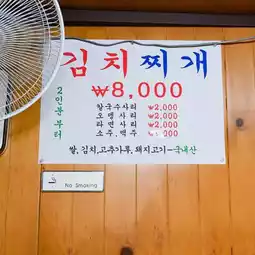 김치찌개
₩8,000
2인분부터
왕국수사리 ₩2,000
오뎅사리 ₩2,000
라면사리 ₩2,000
소주,맥주 ₩5,000
쌀,김치,고추가루,돼지고기-국내산
No Smoking